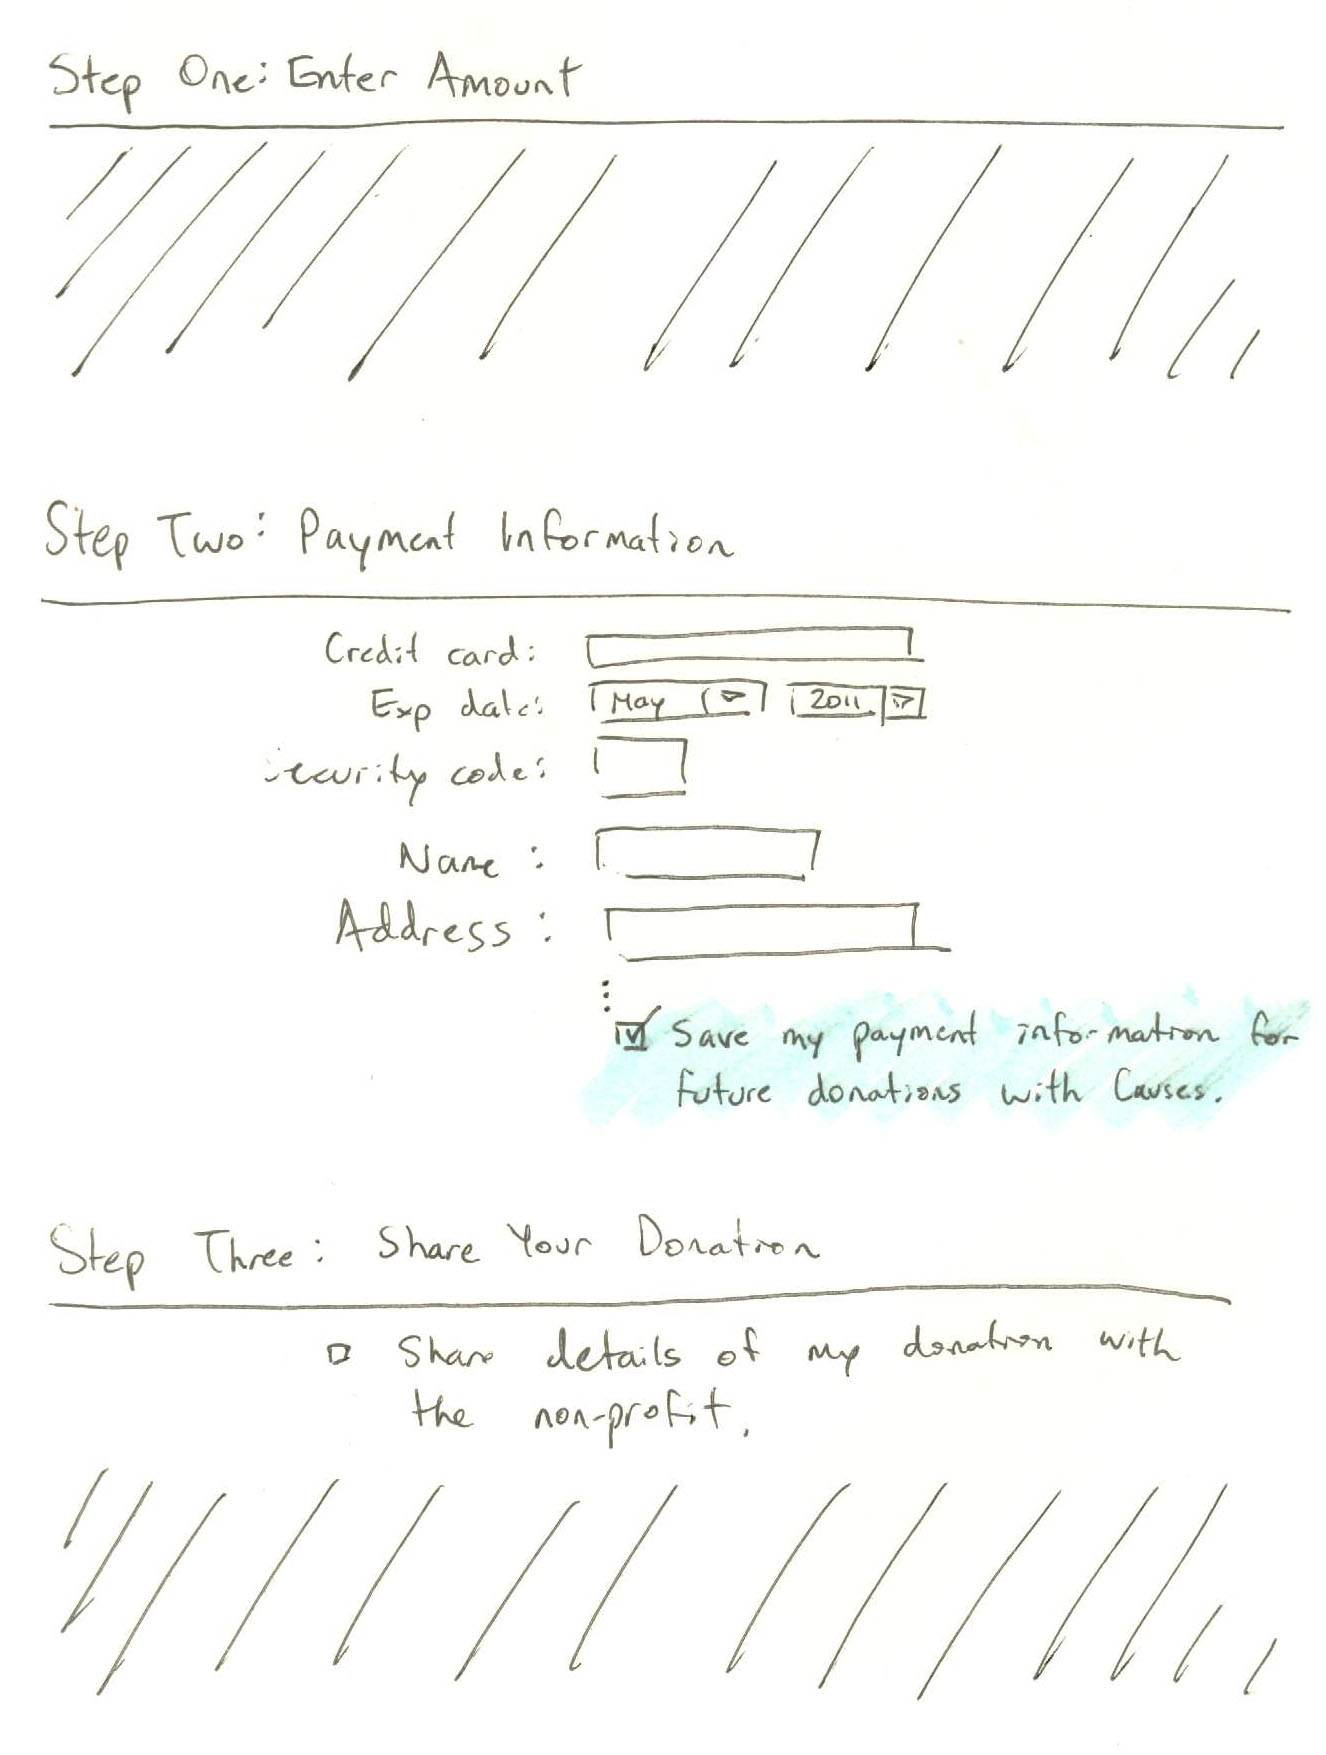 Step One: Enter Amount
Step Two: Payment Information
Credit card:
Exp date: May 2011
Security code:
Name :
Address :
Save my payment information for
future donations with Causes.
Step Three: Share Your Donation
Share details of my donation with
the non-profit.